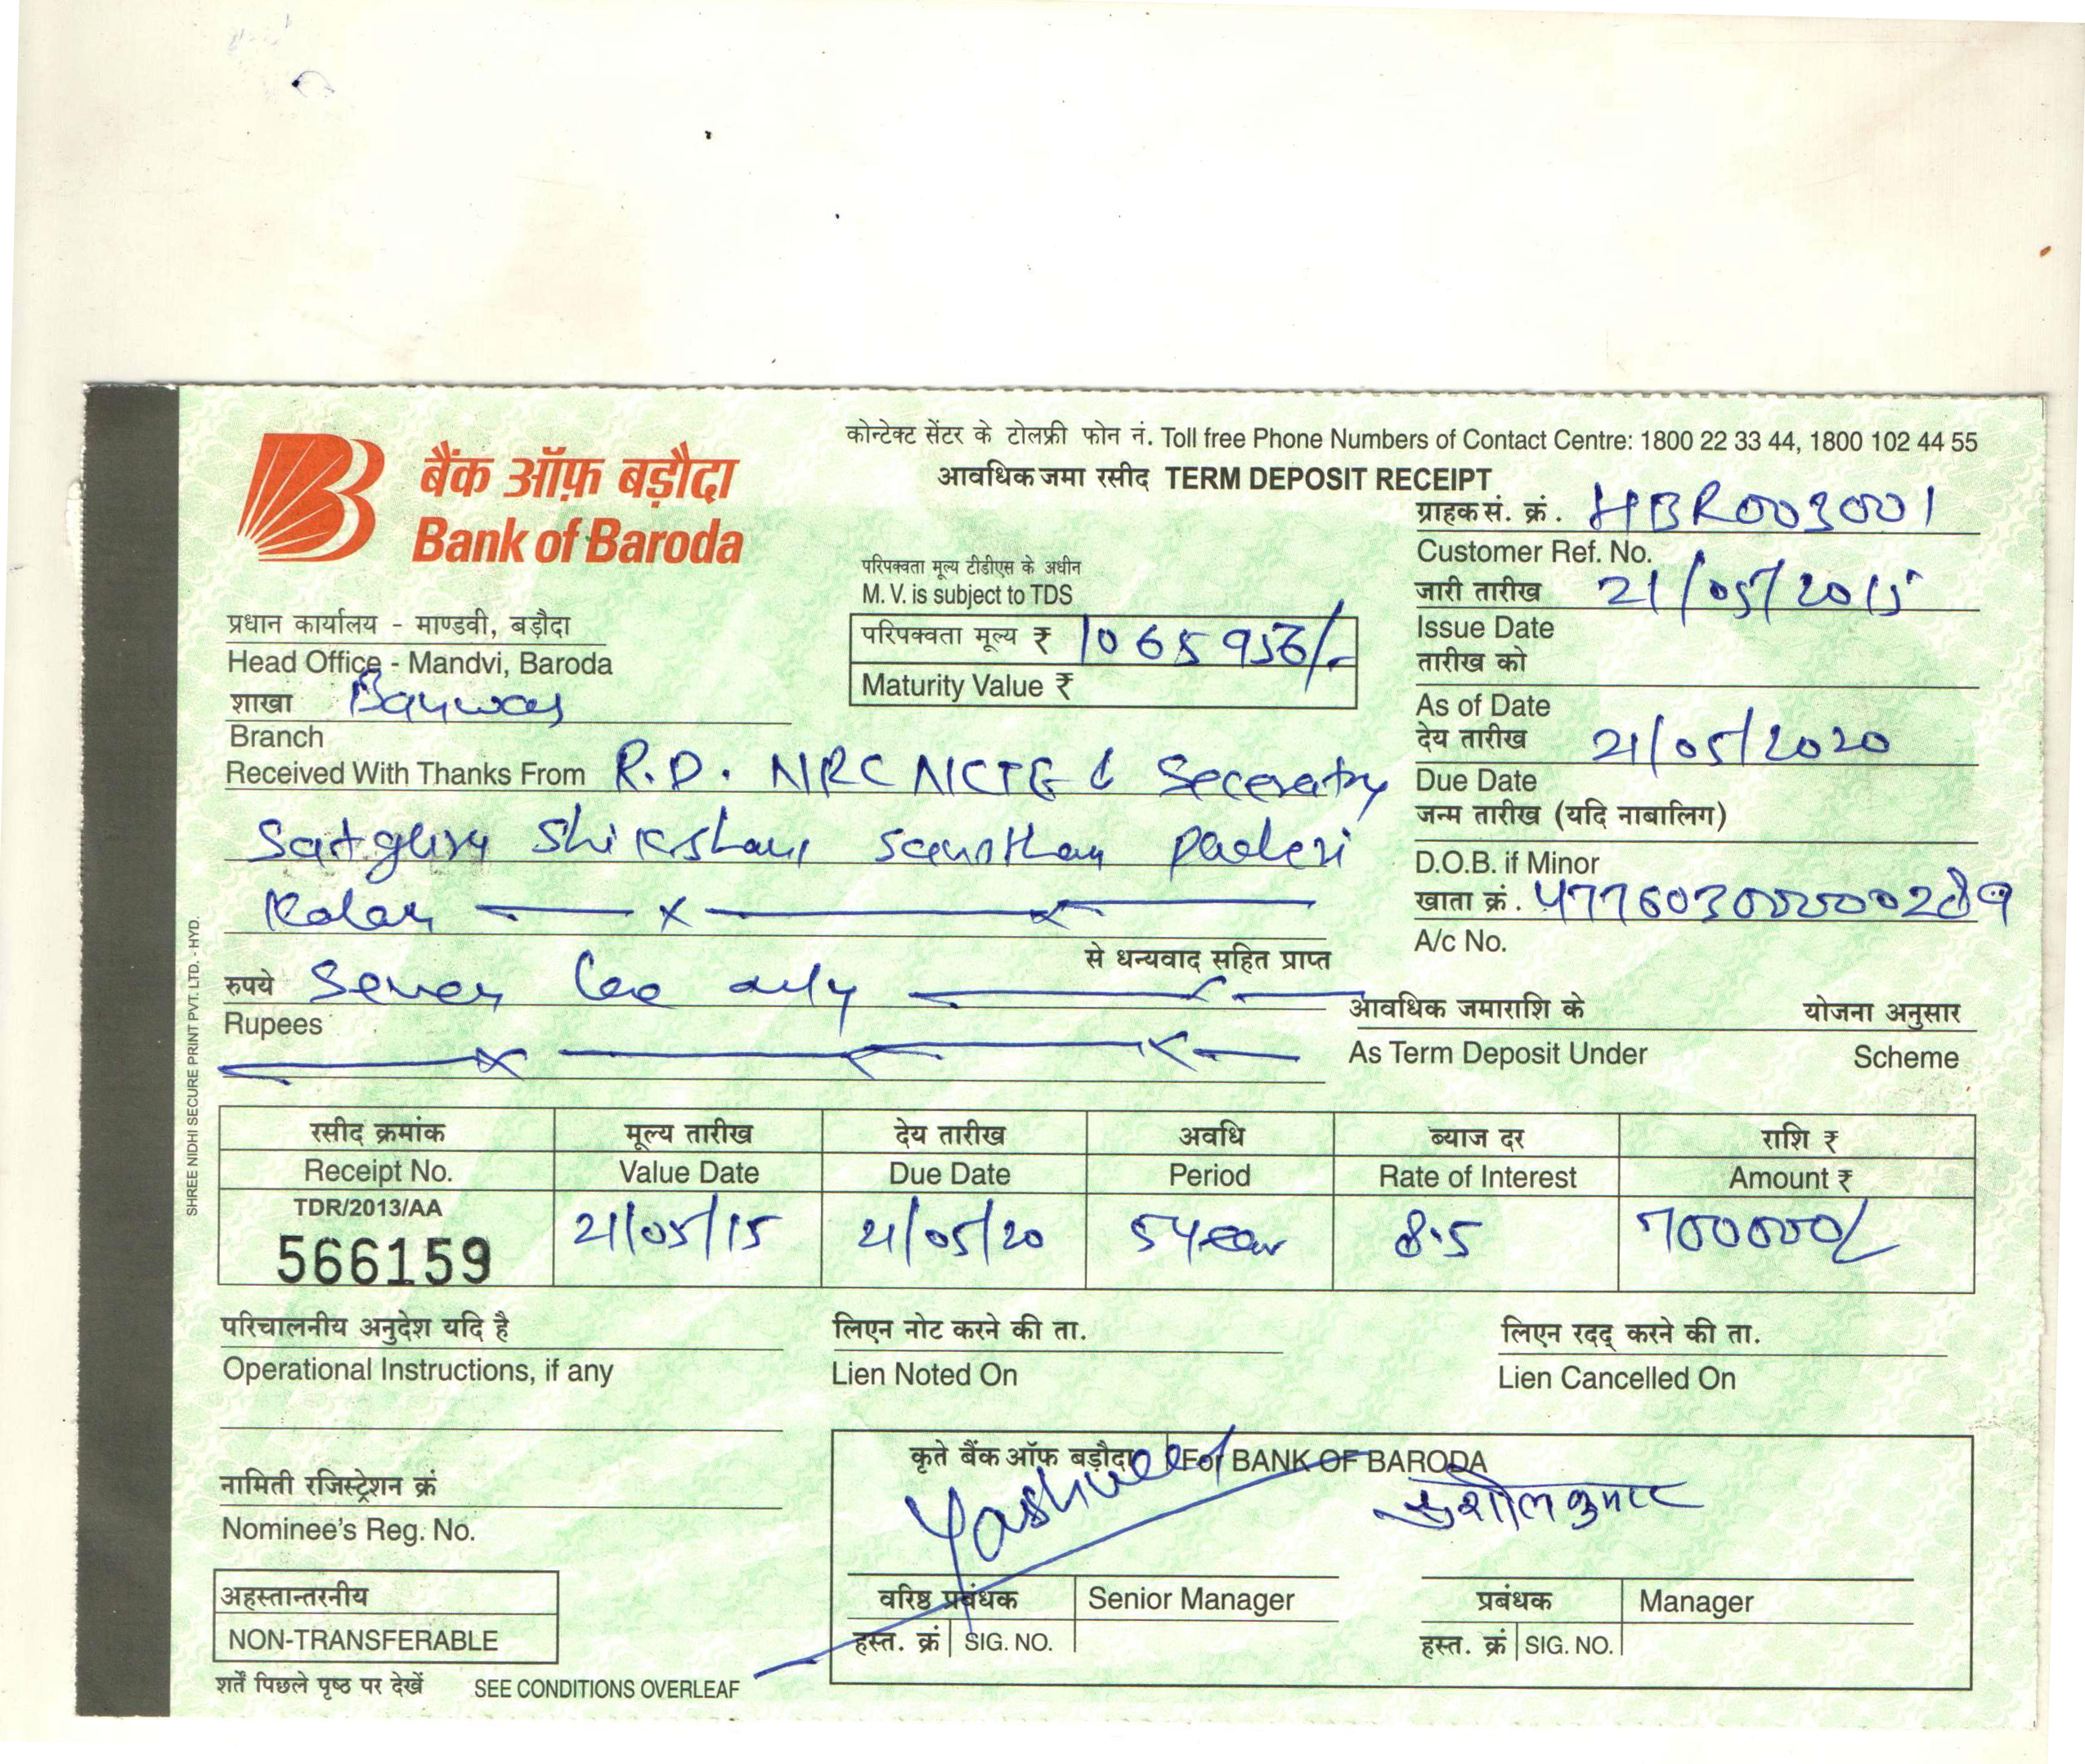 कोन्टेक्ट सेंटर के टोलफ्री फोन नं. Toll free Phone Numbers of Contact Centre: 1800 22 33 44, 1800 102 44 55
आवधिक जमा रसीद TERM DEPOSIT RECEIPT
बैंक ऑफ़ बड़ौदा
Bank of Baroda
ग्राहक सं. क्रं. HBR003001
Customer Ref. No.
परिपक्वता मूल्य टीडीएस के अधीन
M. V. is subject to TDS
जारी तारीख 21/05/2015
Issue Date
प्रधान कार्यालय - माण्डवी, बड़ौदा
Head Office - Mandvi, Baroda
परिपक्वता मूल्य ₹ 1065936/-
Maturity Value ₹
तारीख को
As of Date
शाखा
Branch
देय तारीख 21/05/2020
Due Date
Received With Thanks From R.D. NRC NCTE & Seceratry
Satguru Shikshan Sansthan Paderi
Kalan
जन्म तारीख (यदि नाबालिग)
D.O.B. if Minor
खाता क्रं. 47760300000289
A/c No.
से धन्यवाद सहित प्राप्त
रुपये Seven Lac only
Rupees
आवधिक जमाराशि के योजना अनुसार
As Term Deposit Under Scheme
रसीद क्रमांक मूल्य तारीख देय तारीख अवधि ब्याज दर राशि ₹
Receipt No. Value Date Due Date Period Rate of Interest Amount ₹
TDR/2013/AA
566159 21/05/15 21/05/20 5 year 8.5 700000/
परिचालनीय अनुदेश यदि है लिएन नोट करने की ता. लिएन रदद् करने की ता.
Operational Instructions, if any Lien Noted On Lien Cancelled On
कृते बैंक ऑफ बड़ौदा For BANK OF BARODA
सुशील कुमार
नामिती रजिस्ट्रेशन क्रं
Nominee's Reg. No.
वरिष्ठ प्रबंधक Senior Manager प्रबंधक Manager
हस्त. क्रं SIG. NO. हस्त. क्रं SIG. NO.
अहस्तान्तरनीय
NON-TRANSFERABLE
शर्तें पिछले पृष्ठ पर देखें SEE CONDITIONS OVERLEAF
SHREE NIDHI SECURE PRINT PVT. LTD. - HYD.